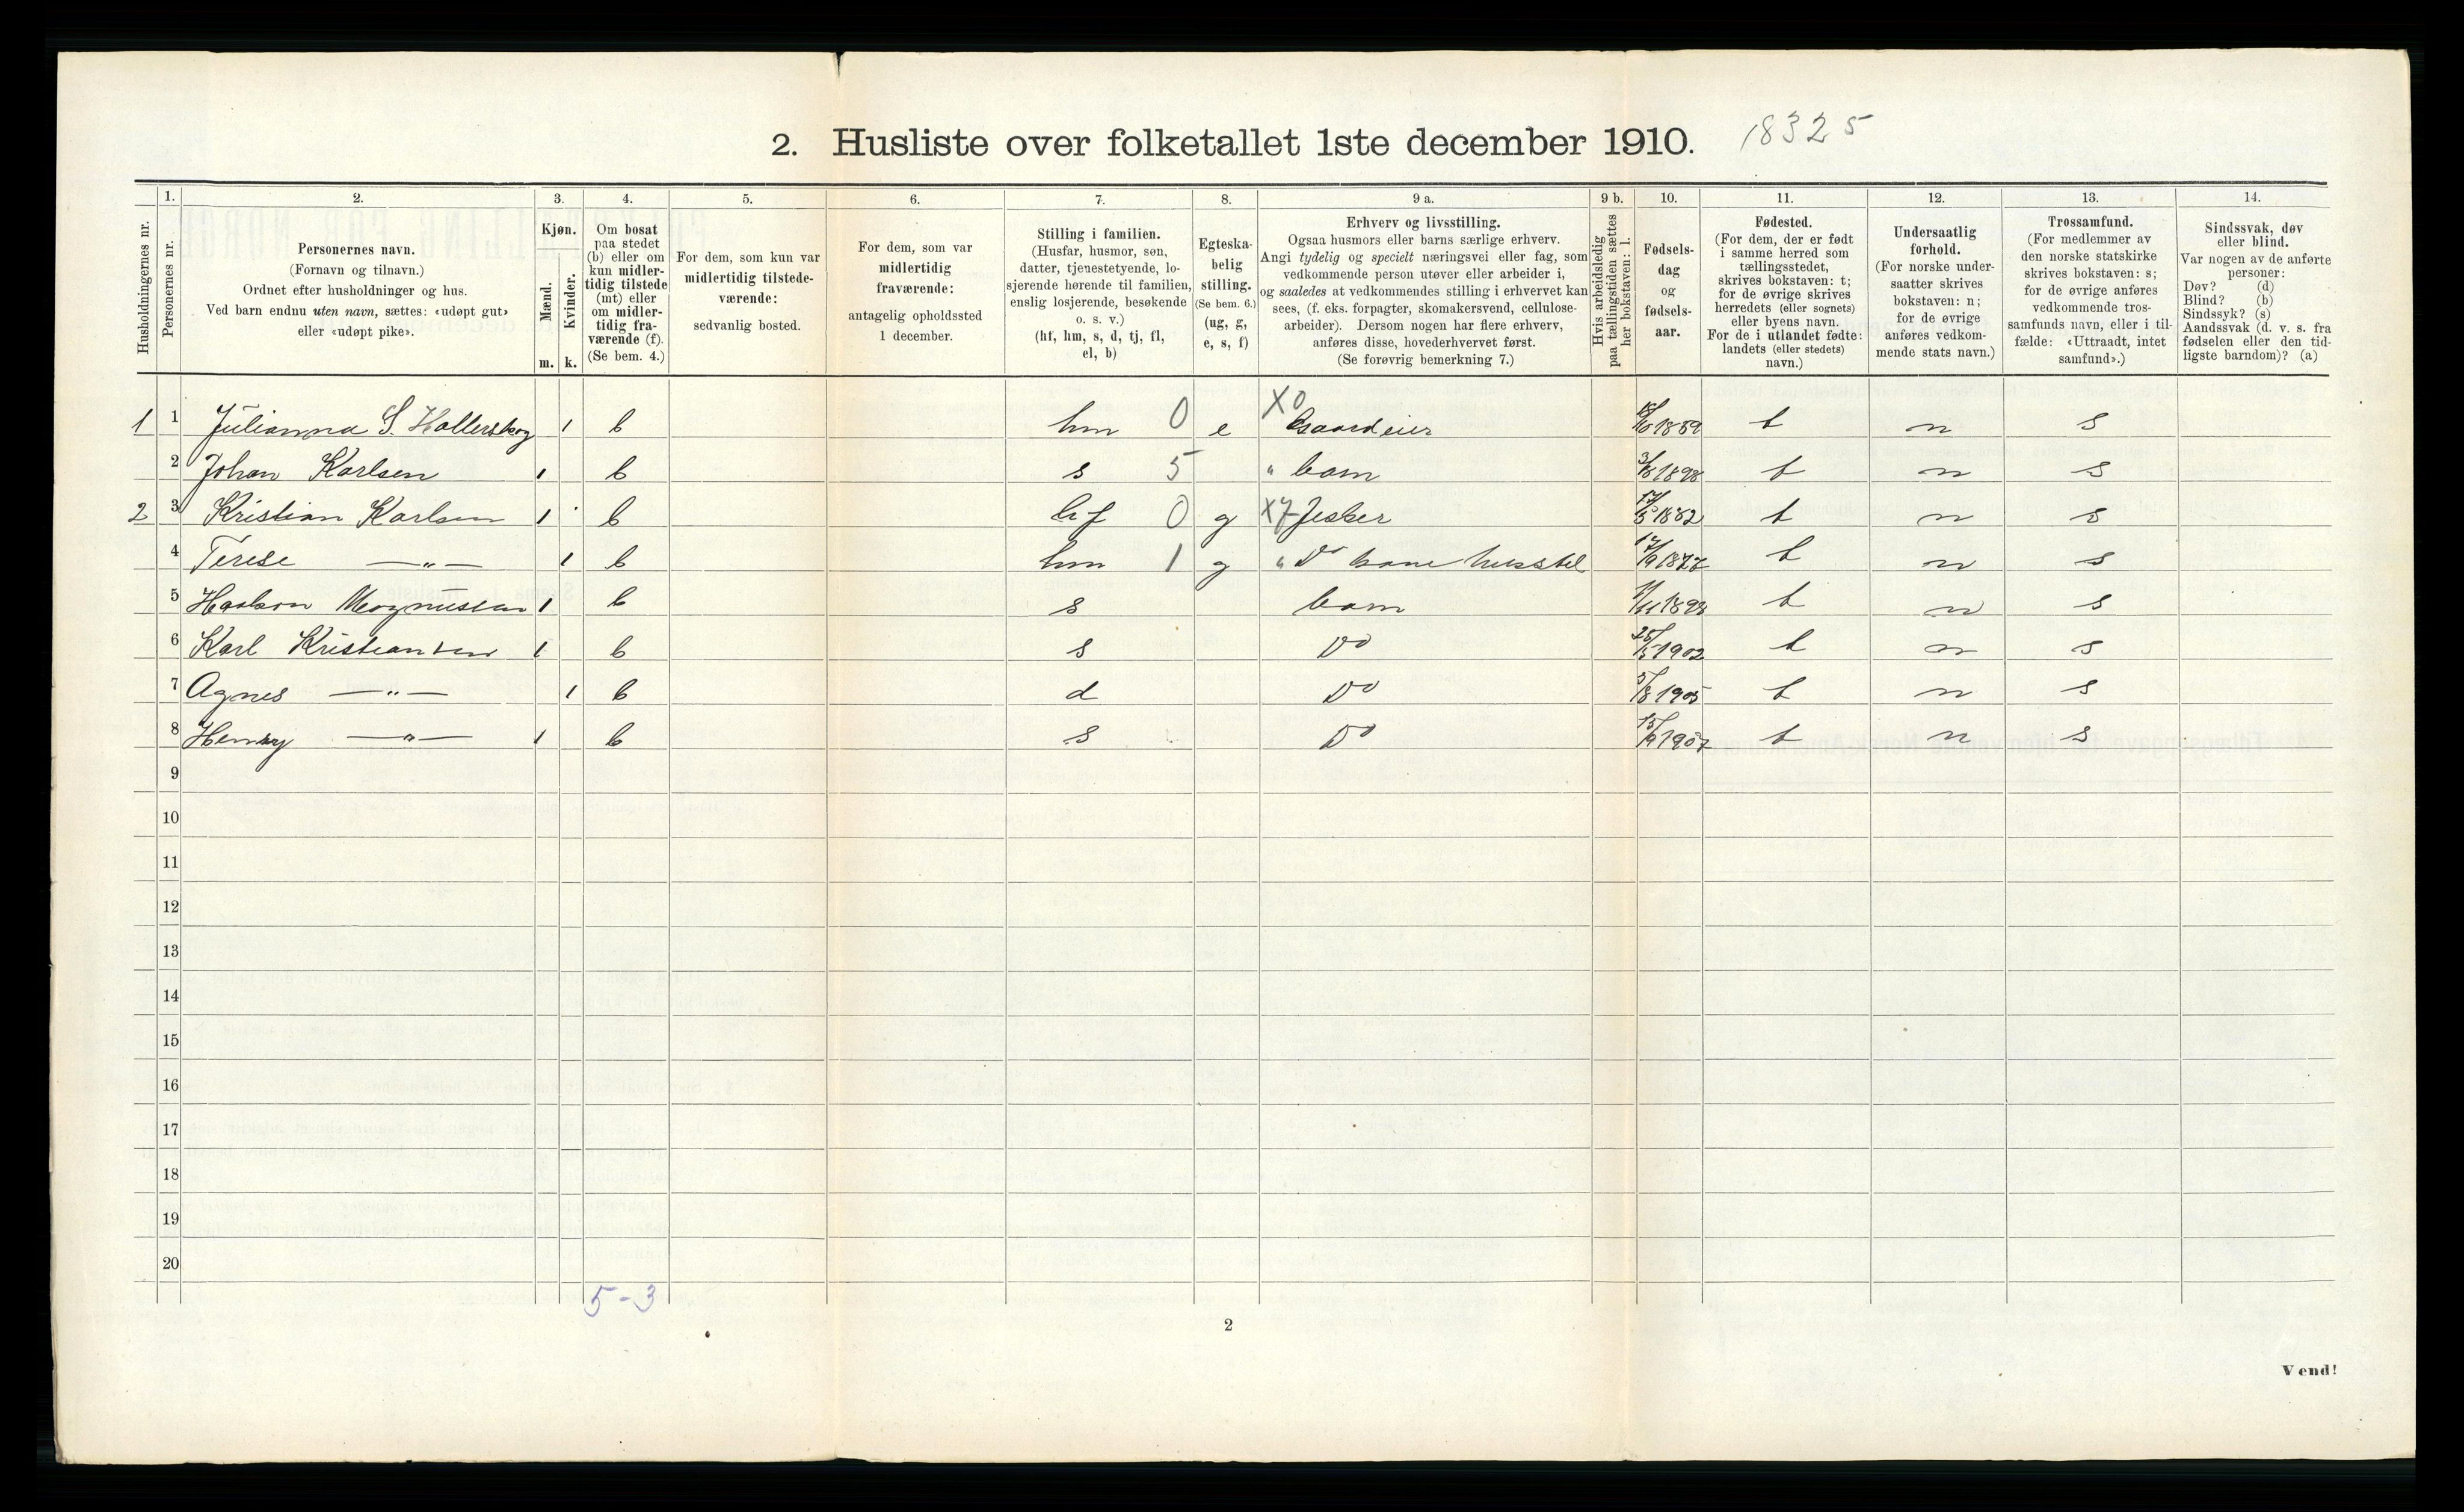 2. Husliste over folketallet 1ste december 1910. 18325
Husholdningernes nr.
1. Personernes nr.
2. Personernes navn.
(Fornavn og tilnavn.)
Ordnet efter husholdninger og hus.
Ved barn endnu uten navn, sættes: «udøpt gut»
eller «udøpt pike».
3. Kjøn.
Mænd. m.
Kvinder. k.
4. Om bosat
paa stedet
(b) eller om
kun midler-
tidig tilstede
(mt) eller
om midler-
tidig fra-
værende (f).
(Se bem. 4.)
5. For dem, som kun var
midlertidig tilstede-
værende:
sedvanlig bosted.
6. For dem, som var
midlertidig
fraværende:
antagelig opholdssted
1 december.
7. Stilling i familien.
(Husfar, husmor, søn,
datter, tjenestetyende, lo-
sjerende hørende til familien,
enslig losjerende, besøkende
o. s. v.)
(hf, hm, s, d, tj, fl,
el, b)
8. Egteska-
belig
stilling.
(Se bem. 6.)
(ug, g,
e, s, f)
9 a. Erhverv og livsstilling.
Ogsaa husmors eller barns særlige erhverv.
Angi tydelig og specielt næringsvei eller fag, som
vedkommende person utøver eller arbeider i,
og saaledes at vedkommendes stilling i erhvervet kan
sees, (f. eks. forpagter, skomakersvend, cellulose-
arbeider). Dersom nogen har flere erhverv,
anføres disse, hovederhvervet først.
(Se forøvrig bemerkning 7.)
9 b. Hvis arbeidsledig
paa tællingstiden sættes
her bokstaven: l.
10. Fødsels-
dag
og
fødsels-
aar.
11. Fødested.
(For dem, der er født
i samme herred som
tællingsstedet,
skrives bokstaven: t;
for de øvrige skrives
herredets (eller sognets)
eller byens navn.
For de i utlandet fødte:
landets (eller stedets)
navn.)
12. Undersaatlig
forhold.
(For norske under-
saatter skrives
bokstaven: n;
for de øvrige
anføres vedkom-
mende stats navn.)
13. Trossamfund.
(For medlemmer av
den norske statskirke
skrives bokstaven: s;
for de øvrige anføres
vedkommende tros-
samfunds navn, eller i til-
fælde: «Uttraadt, intet
samfund».)
14. Sindssvak, døv
eller blind.
Var nogen av de anførte
personer:
Døv? (d)
Blind? (b)
Sindssyk? (s)
Aandssvak (d. v. s. fra
fødselen eller den tid-
ligste barndom)? (a)
1 1 Julianna S. 1 b hm 0 e X0 Gaardeier 1859 t n s
2 Johan Karlsen 1 b s 5 " barn 1898 t n s
2 3 Kristian Karlsen 1 b hf 0 g X7 Fesker 17/5 1882 t n s
4 Terese —"— 1 b hm 1 g " Do husstel t n s
5 1 b s barn t n s
6 Karl Kristiansen 1 b s Do 25/5 1902 t n s
7 Agnes —"— 1 b d Do 5/8 1905 t n s
8 Henry —"— 1 b s Do 15/9 1907 t n s
9
10
11
12
13
14
15
16
17
18
19
20
5-3
2
Vend!